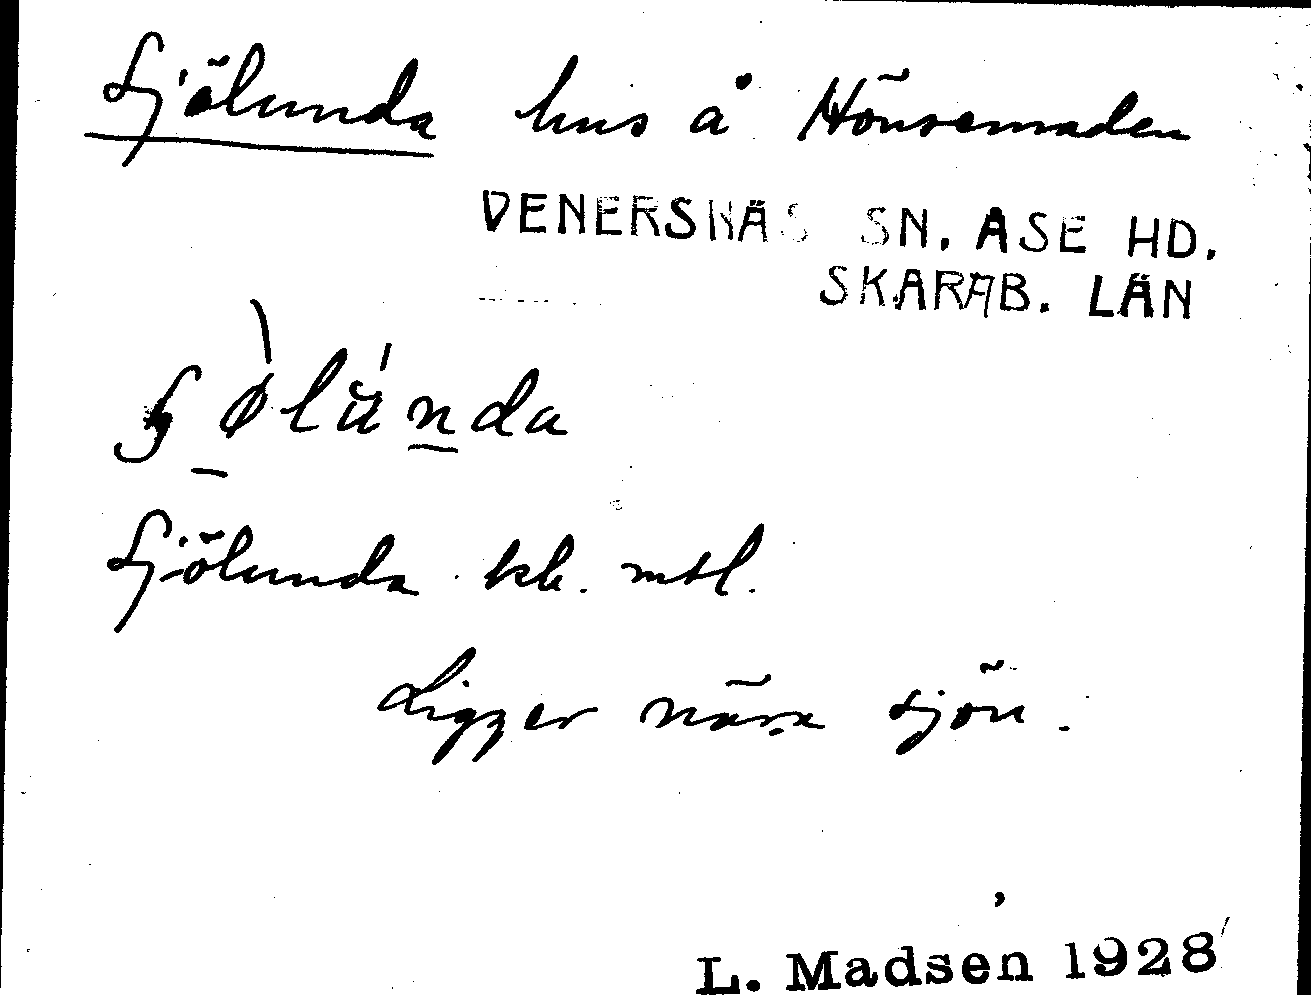 Sjölunda hus å Hönsemaden
VENERSNÄS SN. ÅSE HD.
SKARAB. LÄN
Sjölunda kb. mtl.
Ligger nära sjön.
L. Madsen 1928